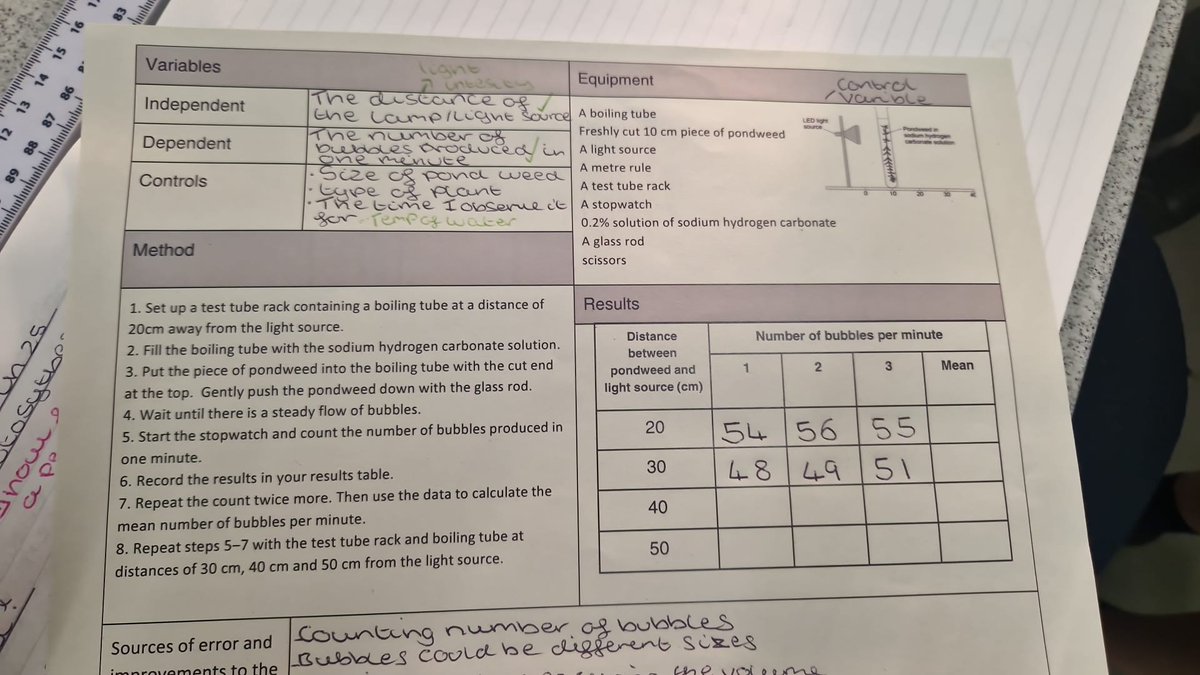 Variables
light
intensity
Independent
The distance of ✓
the lamp/light source
Dependent
The number of
bubbles produced ✓ in
one minute
Controls
• Size of pond weed
• type of plant
• The time I observe it
for - Temp of water
Equipment
Control
Varible
A boiling tube
Freshly cut 10 cm piece of pondweed
A light source
A metre rule
A test tube rack
A stopwatch
0.2% solution of sodium hydrogen carbonate
A glass rod
scissors
LED light
source
Pondweed in
sodium hydrogen
carbonate solution
0 10 20 30
Method
1. Set up a test tube rack containing a boiling tube at a distance of
20cm away from the light source.
2. Fill the boiling tube with the sodium hydrogen carbonate solution.
3. Put the piece of pondweed into the boiling tube with the cut end
at the top. Gently push the pondweed down with the glass rod.
4. Wait until there is a steady flow of bubbles.
5. Start the stopwatch and count the number of bubbles produced in
one minute.
6. Record the results in your results table.
7. Repeat the count twice more. Then use the data to calculate the
mean number of bubbles per minute.
8. Repeat steps 5–7 with the test tube rack and boiling tube at
distances of 30 cm, 40 cm and 50 cm from the light source.
Results
Distance
between
pondweed and
light source (cm)
Number of bubbles per minute
1 2 3 Mean
20 54 56 55
30 48 49 51
40
50
Sources of error and
improvements to the
Counting number of bubbles
Bubbles could be different sizes
the volume
12 13 14 15 16
89 88 87 86 83